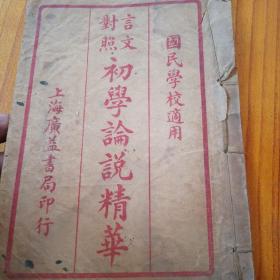 國民學校適用
言文
對照
初學論説精華
上海廣益書局印行